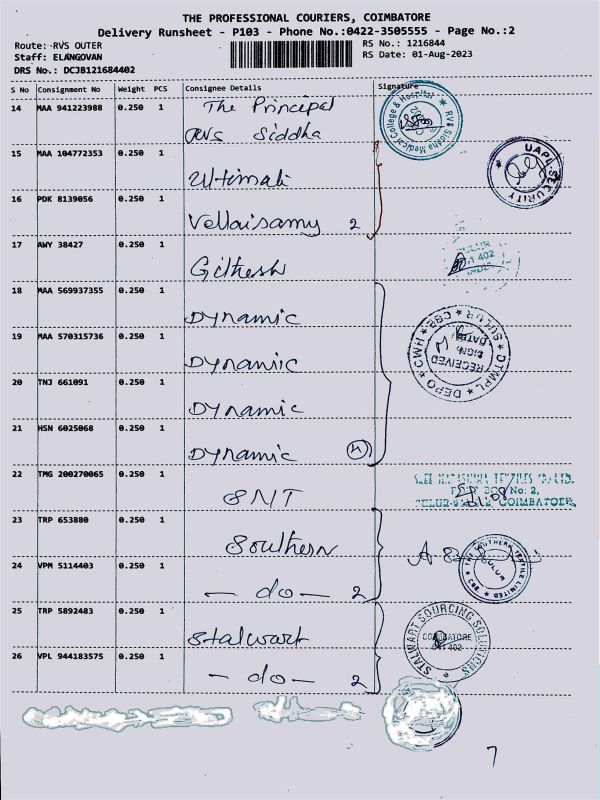 THE PROFESSIONAL COURIERS, COIMBATORE
Delivery Runsheet - P103 - Phone No.:0422-3505555 - Page No.:2
Route: RVS OUTER
RS No.: 1216844
Staff: ELANGOVAN
RS Date: 01-Aug-2023
DRS No.: DCJB121684402
S No Consignment No Weight PCS Consignee Details Signature
14 MAA 941223988 0.250 1 The Principal
RVS Siddha
RVS Siddha Medical College & Hospital
15 MAA 104772353 0.250 1 Ultimate
UAPL SECURITY
16 PDK 8139056 0.250 1 Vellaisamy 2
17 AWY 38427 0.250 1 Githesh
18 MAA 569937355 0.250 1 Dynamic
19 MAA 570315736 0.250 1 Dynamic
DTMPL SULUR CBE CWH DEPO
RECEIVED
SIGN.
DATE
20 TNJ 661091 0.250 1 Dynamic
21 HSN 6025068 0.250 1 Dynamic 4
22 TMG 200270065 0.250 1 SNT
No: 2,
COIMBATORE
23 TRP 653880 0.250 1 Southern
THE SOUTHERN TEXTILE LIMITED
SULUR
CBE
24 VPM 5114403 0.250 1 - do - 2
25 TRP 5892483 0.250 1 Stalwart
STALWART SOURCING SOLUTIONS
COIMBATORE
641 402
26 VPL 944183575 0.250 1 - do - 2
7